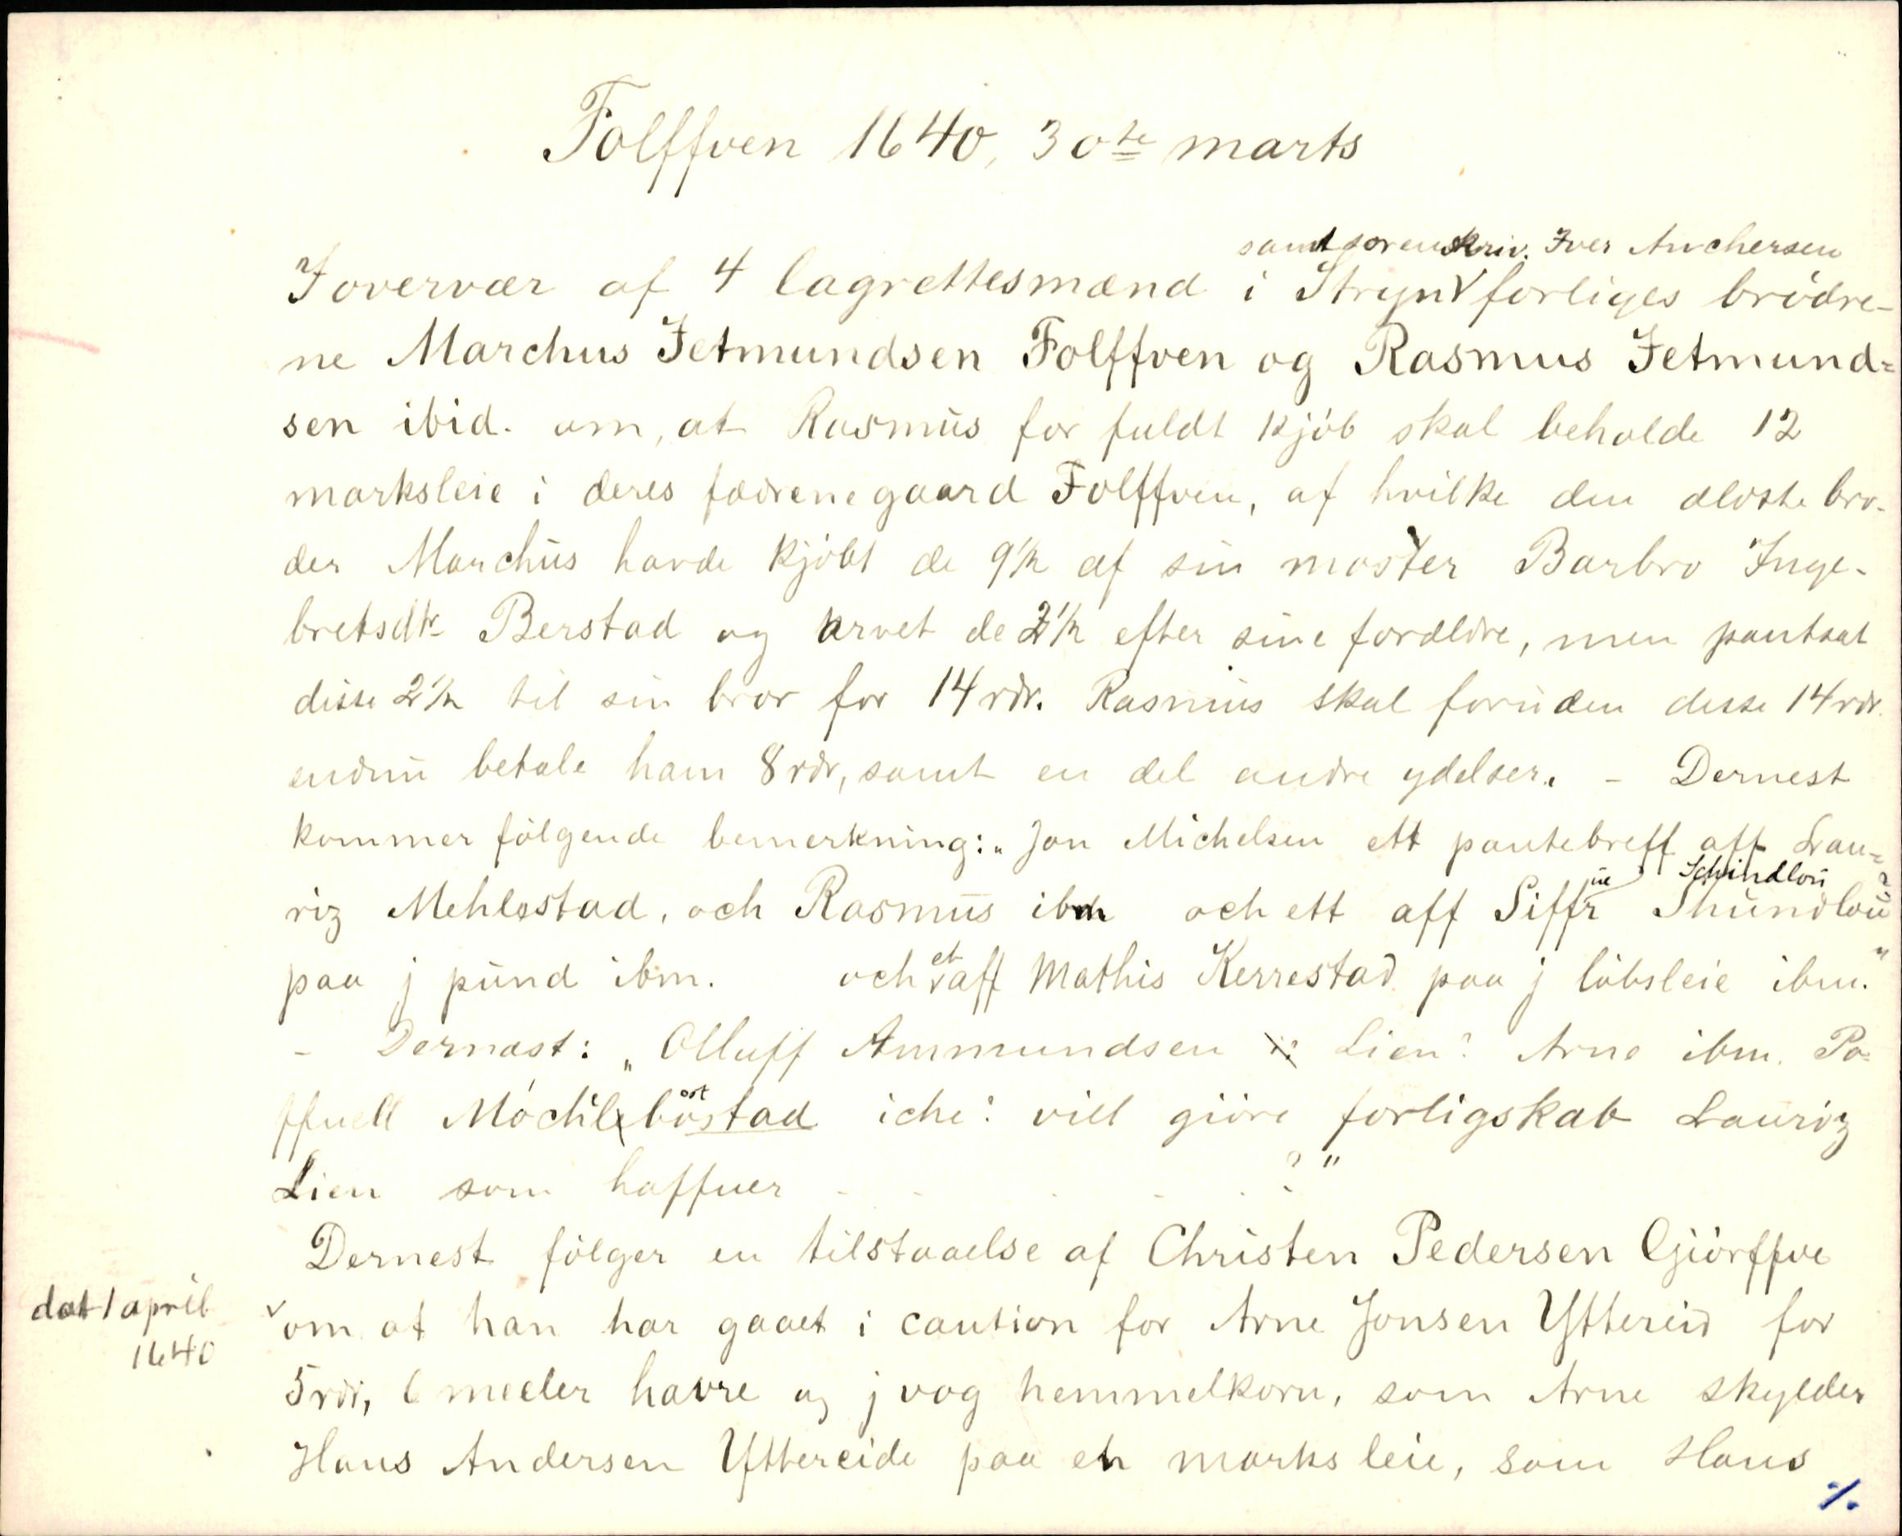 Folffven 1640, 30te marts
samt sorenskriv. Iver Anchersen
I overvær af 4 lagrettesmænd i Stryn v forliges brødre-
ne Marchus Jetmundsen Folffven og Rasmus Jetmund=
sen ibid. om, at Rasmus for fuldt kjøb skal beholde 12
marksleie i deres fædrenegaard Folffven, af hvilke den ældste bro-
der Marchus havde kjøbt de 9½ af sin moster Barbro Inge-
bretsdtr Berstad og arvet de 2½ efter sine forældre, men pantsat
disse 2½ til sin bror for 14 rdr. Rasmus skal foruden disse 14 rdr.
endnu betale ham 8 rdr, samt en del andre ydelser. - Dernest
kommer følgende bemerkning: „Jon Michelsen ett pantebreff aff Lau=
riz Mehlostad, och Rasmus ibm och ett aff Siffr Skundlou
ue Schindlou ?
paa j pund ibm. och v et aff Mathis Kerrestad paa j løbsleie ibm."
- Dernæst: „Olluff Ammundsen Lien? Arne ibm. Po=
ffuell Möchleböstad iche? vill giöre forligskab Lauriz
ost
Lien som haffuer . . . . . ?"
Dernest følger en tilstaaelse af Christen Pedersen Giörffve
dat 1 april
1640
v om at han har gaaet i caution for Arne Jonsen Yttereid for
5 rdr, 6 meeler havre og j vog hemmelkorn, som Arne skylder
Hans Andersen Yttereide paa en marksleie, som Hans
./.